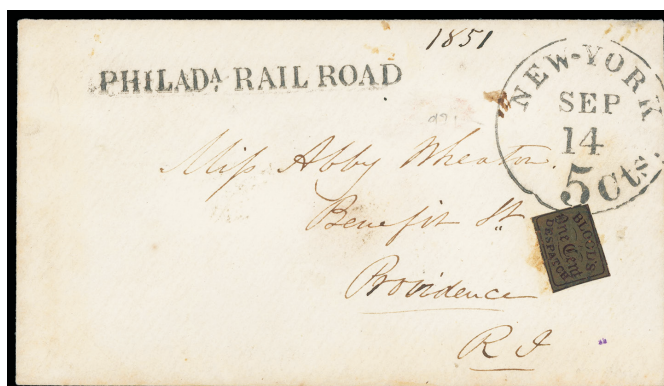 1851
PHILADA. RAIL ROAD
NEW-YORK
SEP
14
5 Cts.
Miss Abby Wheaton.
Benefit St.
Providence
R I
BLOOD'S
One Cent
DESPATCH